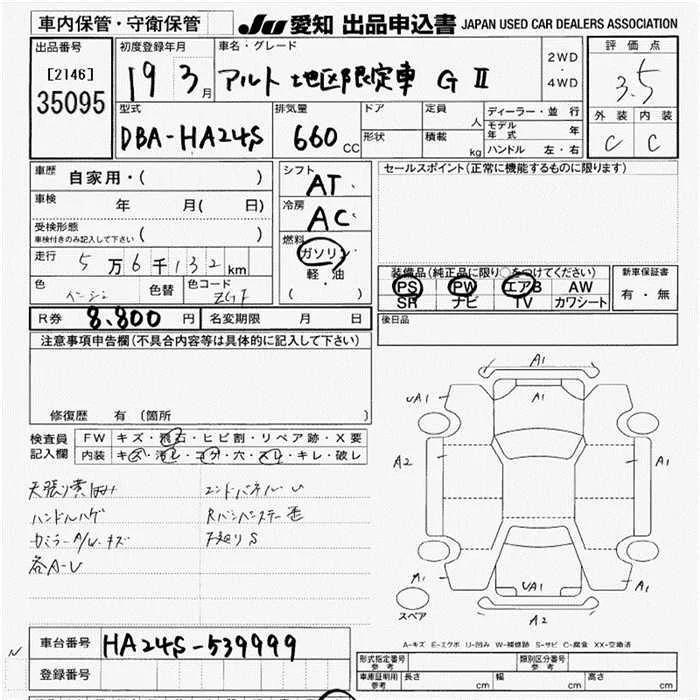 車内保管・守衛保管
JU 愛知 出品申込書 JAPAN USED CAR DEALERS ASSOCIATION
出品番号
[2146]
35095
初度登録年月
19 3月
車名・グレード
アルト 地区限定車 G Ⅱ
2WD
・
4WD
評価点
3.5
外装 内装
C C
型式
DBA-HA24S
排気量
660 CC
ドア
形状
定員 人
積載 kg
ディーラー・並行
モデル年式 年
ハンドル 左・右
車歴 自家用・( )
車検 年 月( 日)
受検形態
車検付きのみ記入して下さい ( )
走行 5万6千132km
色 ベージュ 色替 色コード ZG7
シフト
AT
冷房
AC
燃料
ガソリン
軽・油
( )
セールスポイント(正常に機能するものに限ります)
装備品(純正品に限り○をつけてください)
PS PW エアB AW
SR ナビ TV カワシート
新車保証書
有・無
R券 8,800円 名変期限 月 日
後日品
注意事項申告欄(不具合内容等は具体的に記入して下さい)
修復歴 有(箇所 )
検査員記入欄
FW キズ・飛石・ヒビ割・リペア跡・X要
内装 キズ・汚レ・コゲ・穴・スレ・キレ・破レ
ハンドルハゲ
カミラーA/W.キズ
各A-U
エンドパネルU
A1
UA1
A1
A2
A1
A1
UA1
A1
A2
スペア
A-キズ E-エクボ U-凹み W-補修跡 S-サビ C-腐食 XX-交換済
N
車台番号 HA24S-539999
登録番号
形式指定番号 参考
類別区分番号 参考
車庫証明用 参考 長さ cm 幅 cm 高さ cm